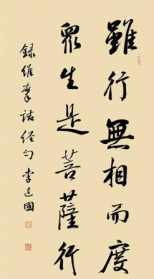 雖行無相而度
眾生是菩薩行
錄維摩詰經句 李達國